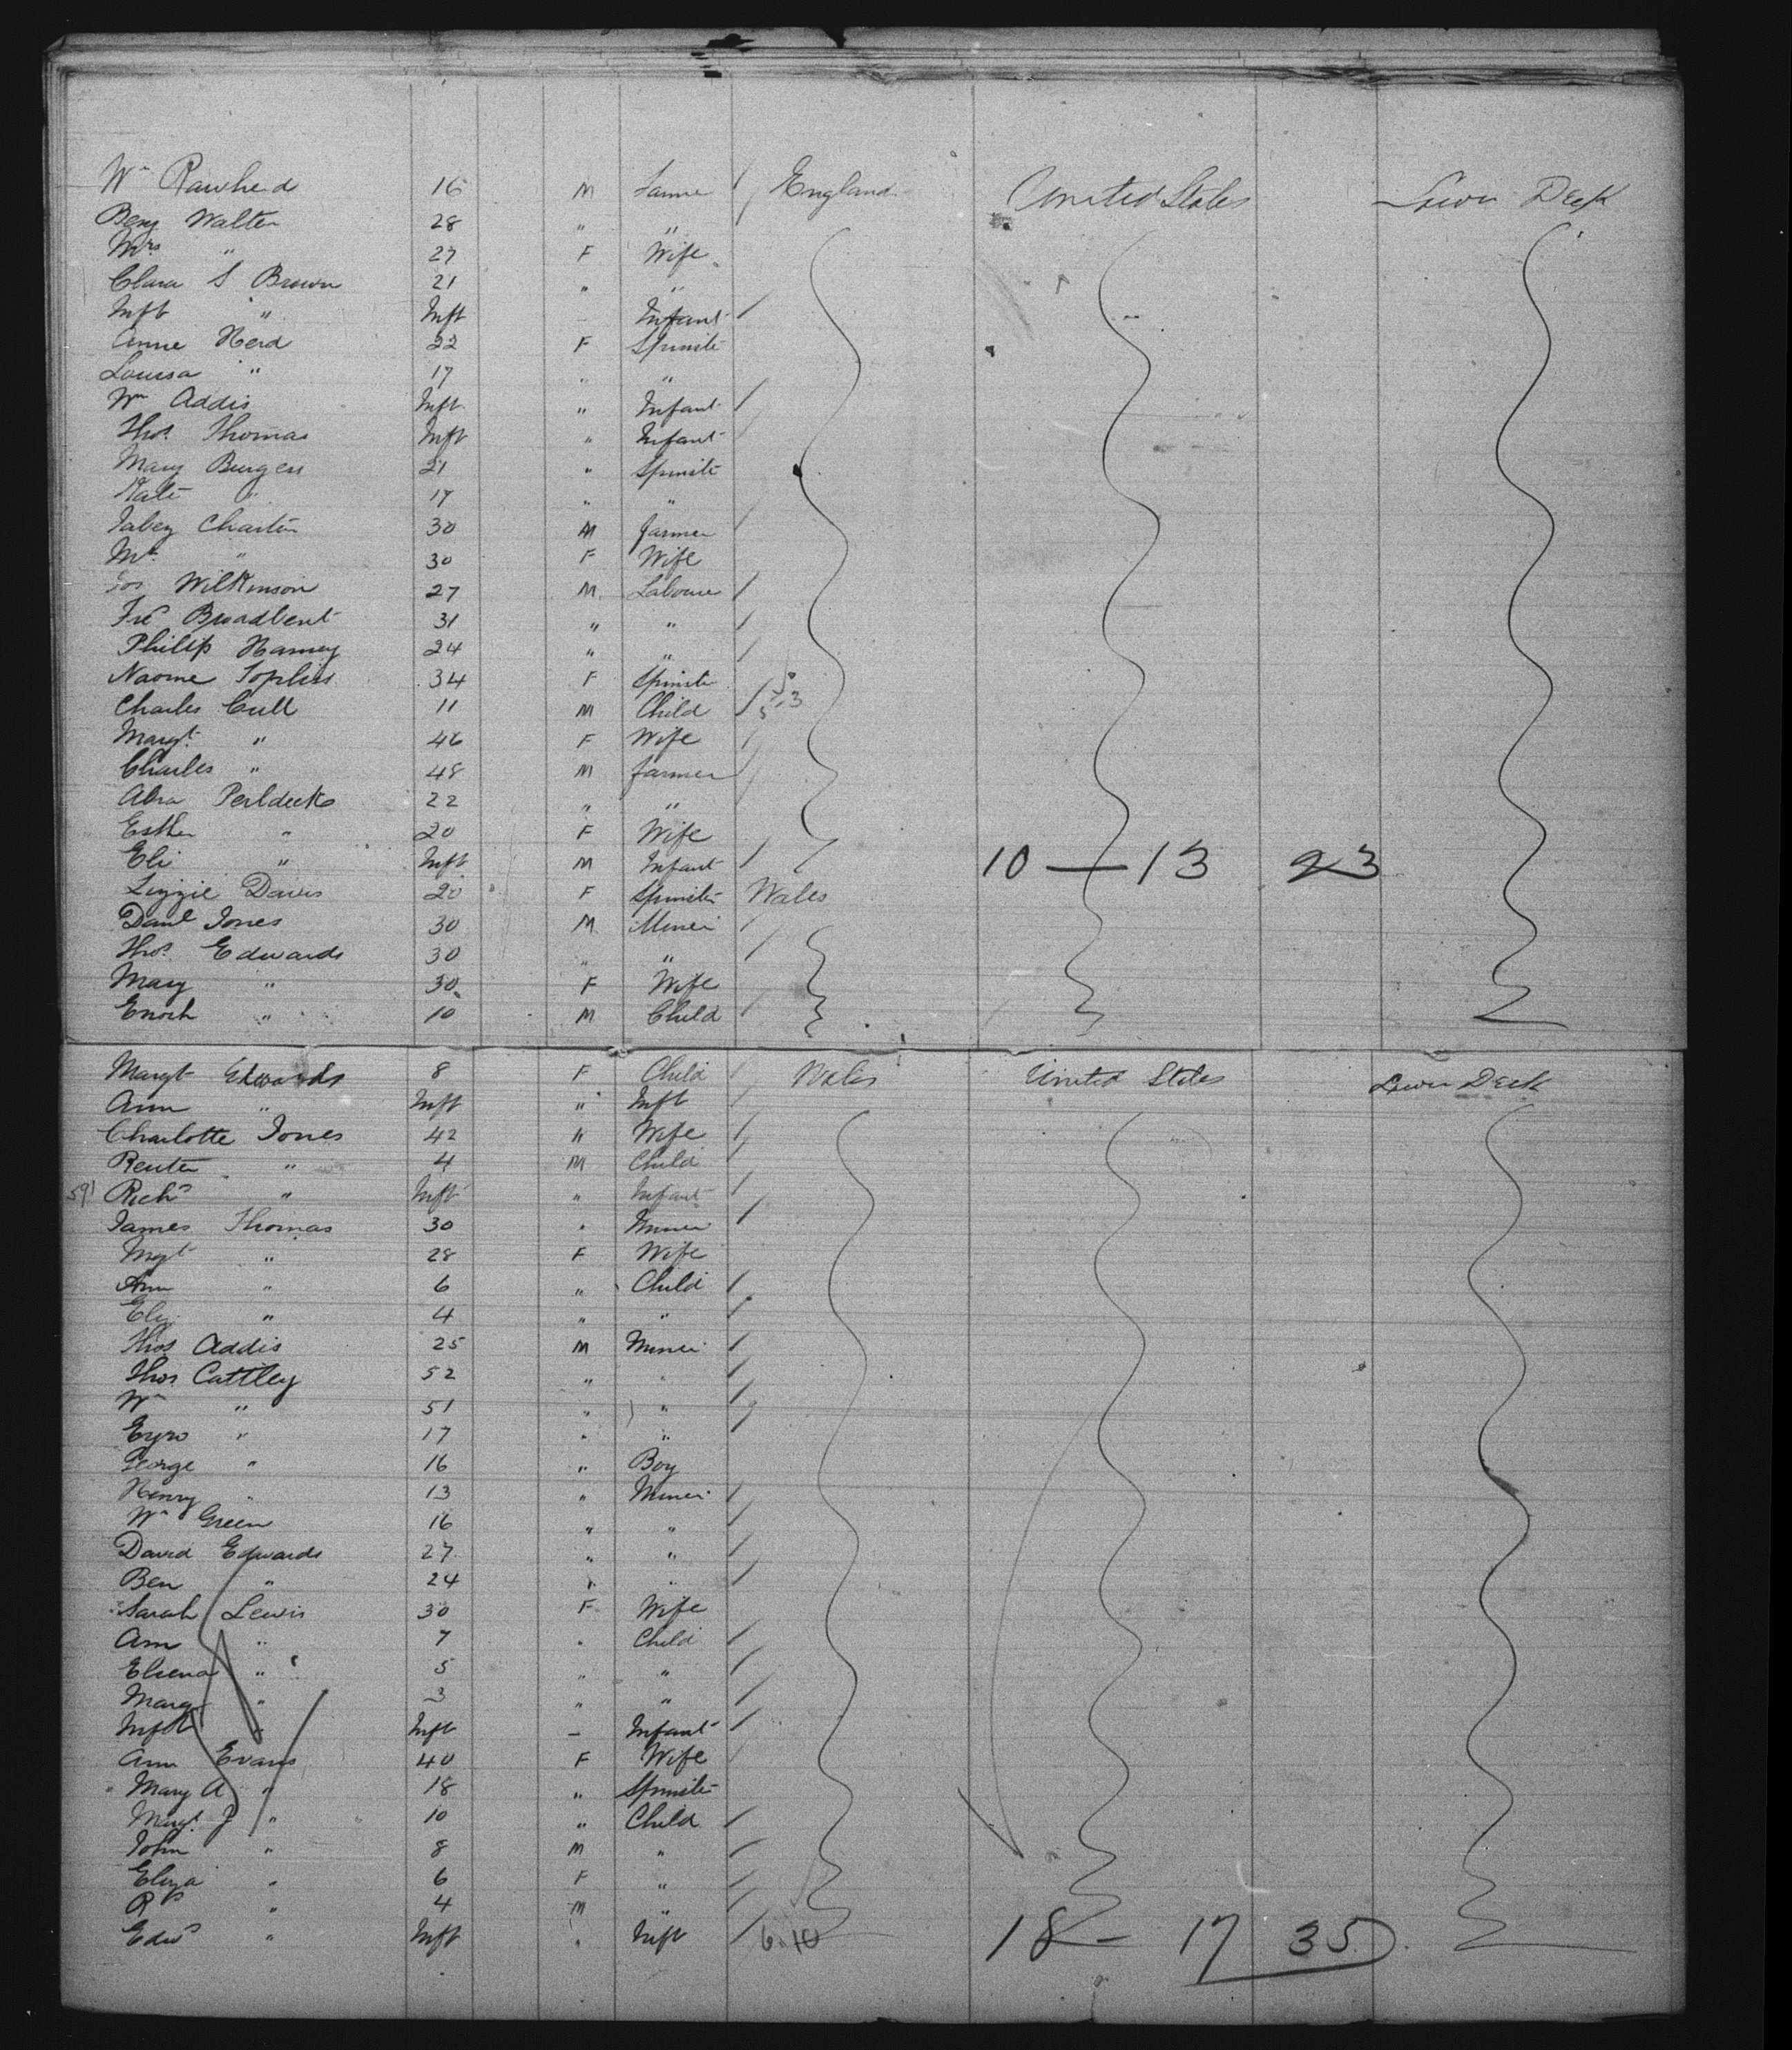 Wm Rawhead 16 M Farmer England United States Lower Deck
Benj Walter 28 " "
Mrs " 27 F Wife
Clara S Brown 21 " "
Inft " Inft Infant
Annie Herd 22 F Spinster
Louisa " 17 " "
Wm Addis Inft " Infant
Thos Thomas Inft " Infant
Mary Burgess 21 " Spinster
Kate " 17 " "
Jabez 30 M Farmer
Mrs " 30 F Wife
Jos Wilkinson 27 M Labourer
Fred Broadbent 31 " "
Philip Harvey 24 " "
Naome Topliss 34 F Spinster
Charles Cull 11 M Child
Margt " 46 F Wife
Charles " 48 M Farmer
Abra 22 " "
Esther " 20 F Wife
Eli " Inft M Infant 10 — 13 23
Lizzie Davis 20 F Spinster Wales
Danl Jones 30 M Miner
Thos Edwards 30 " "
Mary " 30 F Wife
Enoch " 10 M Child
Margt Edwards 8 F Child Wales United States Lower Deck
Ann " Inft " Inft
Charlotte Jones 42 " Wife
" 4 M Child
Richd " Inft " Infant
James Thomas 30 " Miner
Mgt " 28 F Wife
Ann " 6 " Child
Eliz " 4 " "
Thos Addis 25 M Miner
Thos Cattley 52 " "
Wm " 51 " "
" 17 " "
George " 16 " Boy
Henry " 13 " Miner
Wm Green 16 " "
David Edwards 27 " "
Ben " 24 " "
Sarah Lewis 30 F Wife
Ann " 7 " Child
" 5 " "
Margt " 3 " "
Inft " Inft — Infant
Ann Evans 40 F Wife
Mary A " 18 " Spinster
Margt J " 10 " Child
John " 8 M "
Eliza " 6 F "
Rd " 4 M "
Edwd " Inft " Inft 6.10 18 — 17 35